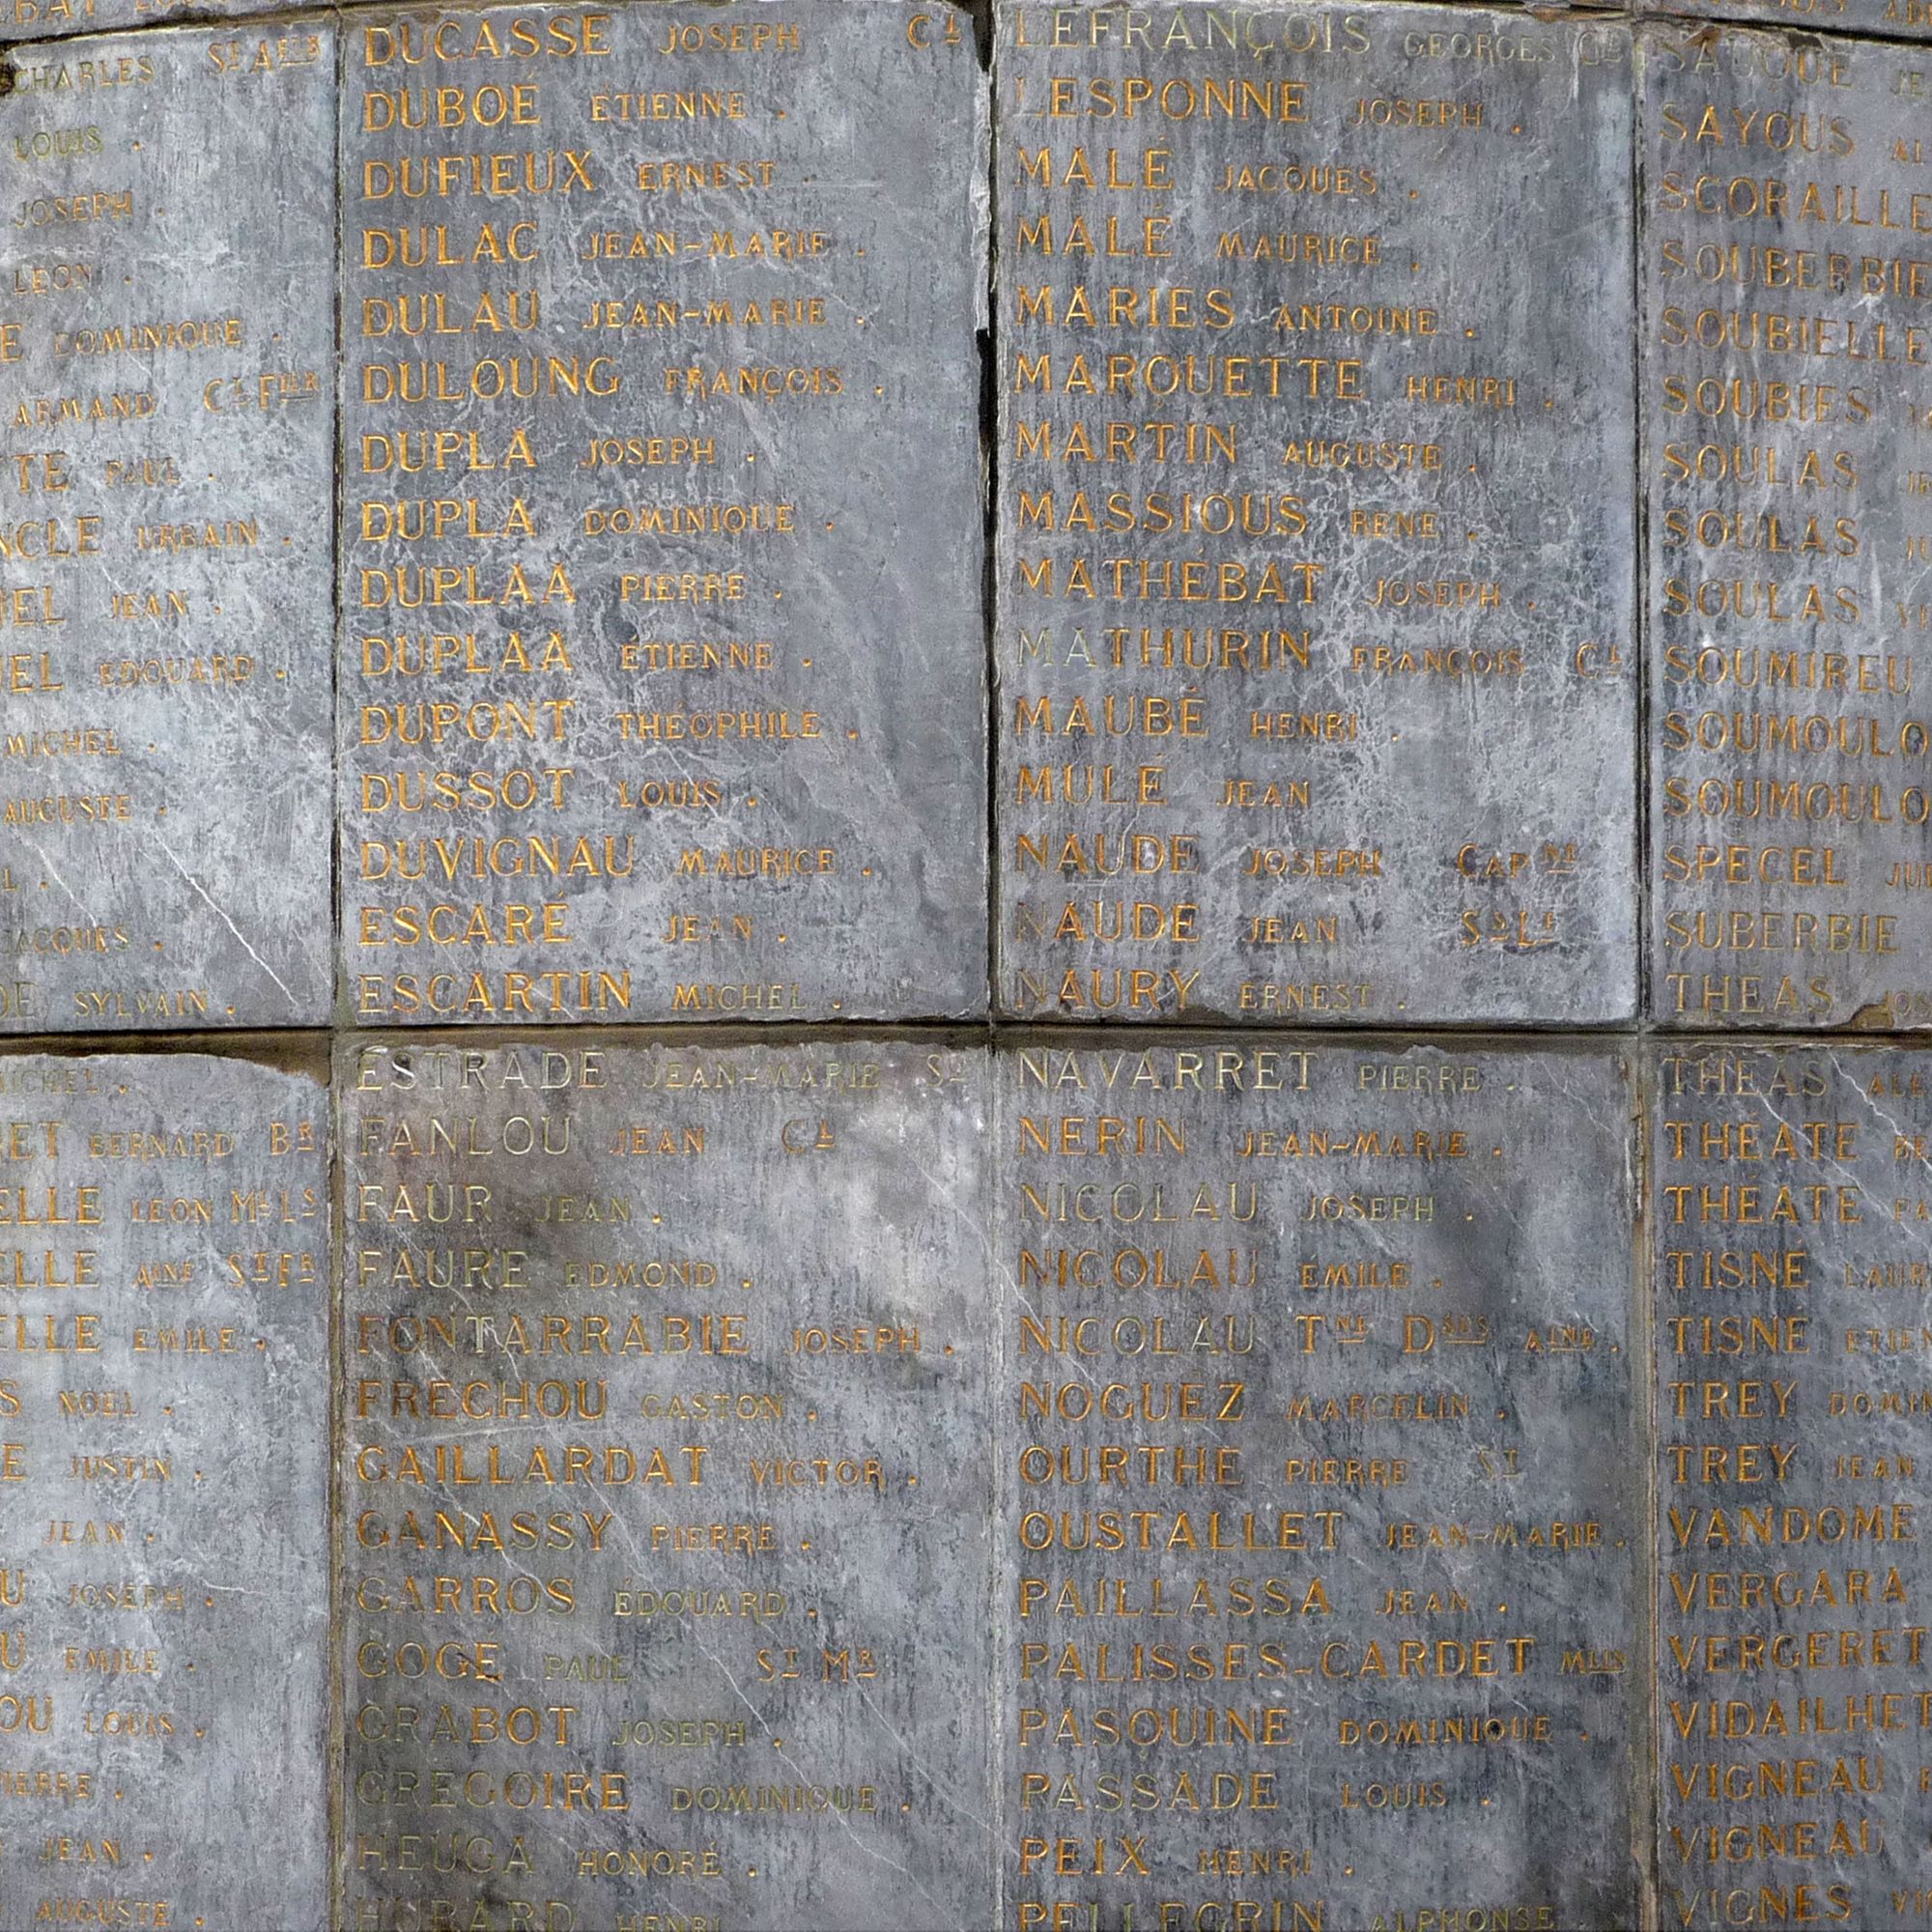 CHARLES
LOUIS .
JOSEPH .
LEON .
E DOMINIQUE .
ARMAND
TE PAUL .
NCLE URBAIN .
EL JEAN .
EL EDOUARD .
MICHEL .
AUGUSTE .
L .
JACQUES .
DE SYLVAIN .
MICHEL .
ET BERNARD BR
ELLE LEON
ELLE AINÉ
ELLE EMILE .
S NOEL .
E JUSTIN .
JEAN .
U JOSEPH .
U EMILE .
OU LOUIS .
PIERRE .
JEAN .
AUGUSTE .
DUCASSE JOSEPH CL
DUBOÉ ETIENNE .
DUFIEUX ERNEST .
DULAC JEAN-MARIE .
DULAU JEAN-MARIE .
DULOUNG FRANÇOIS .
DUPLA JOSEPH .
DUPLA DOMINIQUE .
DUPLAA PIERRE .
DUPLAA ETIENNE .
DUPONT THÉOPHILE .
DUSSOT LOUIS .
DUVIGNAU MAURICE .
ESCARÉ JEAN .
ESCARTIN MICHEL .
ESTRADE JEAN-MARIE ST
FANLOU JEAN CL
FAUR JEAN .
FAURE EDMOND .
FONTARRABIE JOSEPH .
FRECHOU GASTON .
GAILLARDAT VICTOR .
GANASSY PIERRE .
GARROS ÉDOUARD .
GOGÉ PAUL ST MR
GRABOT JOSEPH .
GREGOIRE DOMINIQUE .
HEUGA HONORÉ .
HUBARD HENRI
LEFRANÇOIS GEORGES
LESPONNE JOSEPH .
MALE JACQUES .
MALÉ MAURICE .
MARIES ANTOINE .
MARQUETTE HENRI .
MARTIN AUGUSTE .
MASSIOUS RENÉ .
MATHÉBAT JOSEPH .
MATHURIN FRANÇOIS CL
MAUBÉ HENRI .
MULÉ JEAN
NAUDE JOSEPH CAP NE
NAUDE JEAN S LT
NAURY ERNEST .
NAVARRET PIERRE .
NERIN JEAN-MARIE .
NICOLAU JOSEPH .
NICOLAU ÉMILE .
NICOLAU TNE DSDS AINÉ .
NOGUEZ MARCELIN .
OURTHE PIERRE ST
OUSTALLET JEAN-MARIE .
PAILLASSA JEAN .
PALISSES-CARDET MLIN
PASQUINE DOMINIQUE .
PASSADE LOUIS .
PEIX HENRI .
PELLEGRIN ALPHONSE .
SAYOUS AL
SCORAILLE
SOUBERBIE
SOUBIELLE
SOUBIES
SOULAS JE
SOULAS
SOULAS
SOUMIREU
SOUMOULO
SOUMOULO
SPECEL JU
SUBERBIE
THEAS JOS
THEAS ALE
THÉATE BE
THÉATE
TISNÉ LAUR
TISNÉ ETIE
TREY DOMI
TREY JEAN
VANDOME
VERGARA
VERGERET
VIDAILHET
VIGNEAU
VIGNEAU
VIGNES